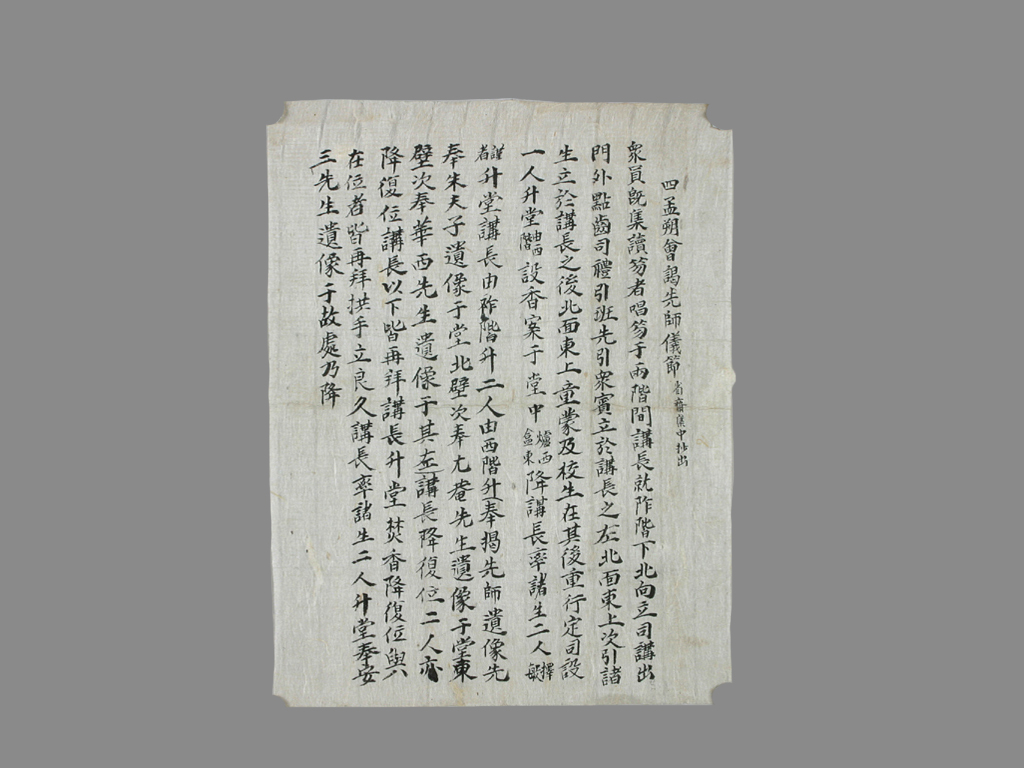 四孟朔會謁先師儀節 省齋集中抄出
衆員旣集讀笏者唱笏于兩階間講長就阼階下北向立司講出
門外點齒司禮引班先引衆賓立於講長之左北面東上次引諸
生立於講長之後北面東上童蒙及校生在其後重行定司設
一人升堂 由西階 設香案于堂中 爐西盒東 降講長率諸生二人 擇敏
謹者 升堂講長由阼階升二人由西階升奉揭先師遺像先
奉朱夫子遺像于堂北壁次奉尤菴先生遺像于堂東
壁次奉華西先生遺像于其左講長降復位二人亦
降復位講長以下皆再拜講長升堂焚香降復位與
在位者皆再拜拱手立良久講長率諸生二人升堂奉安
三先生遺像于故處乃降